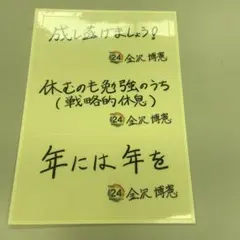 成し遂げましょう!
24 金沢 博憲
休むのも勉強のうち
(戦略的休息)
24 金沢 博憲
年には年を
24 金沢 博憲